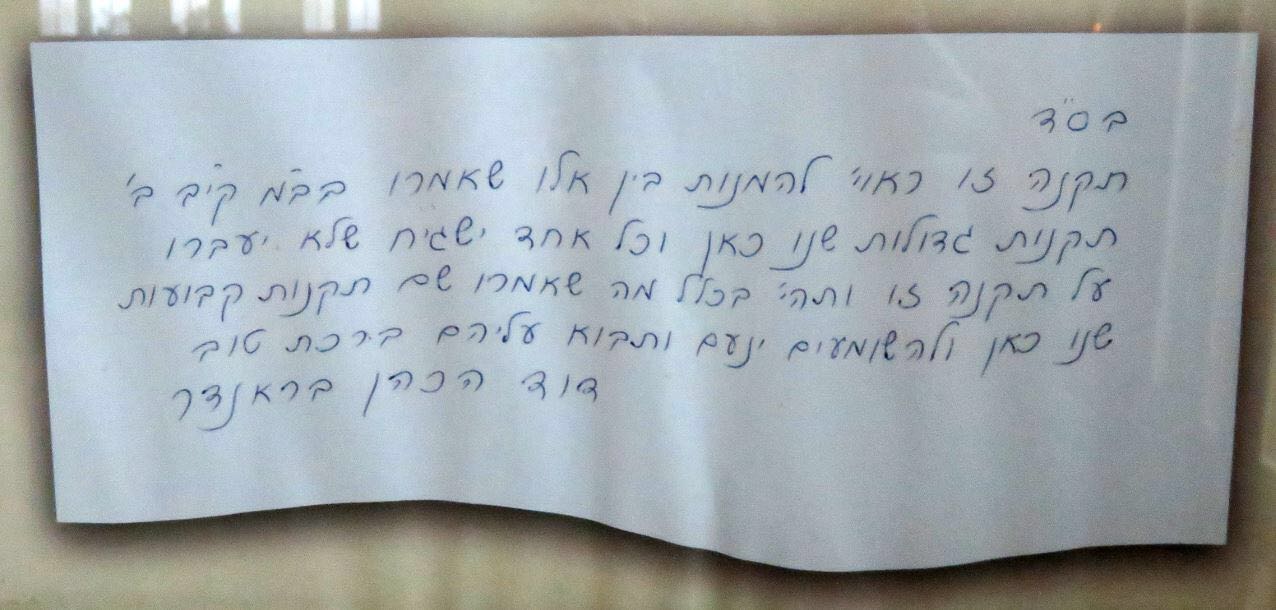 בס"ד
תקנה זו ראוי' להמנות בין אלו שאמרו בב"מ קי"ב ב'
תקנות גדולות שנו כאן וכל אחד ישגיח שלא יעברו
על תקנה זו ותהי' בכלל מה שאמרו שם תקנות קבועות
שנו כאן ולהשומעים ינעם ותבוא עליהם ברכת טוב
דוד הכהן בראנדר